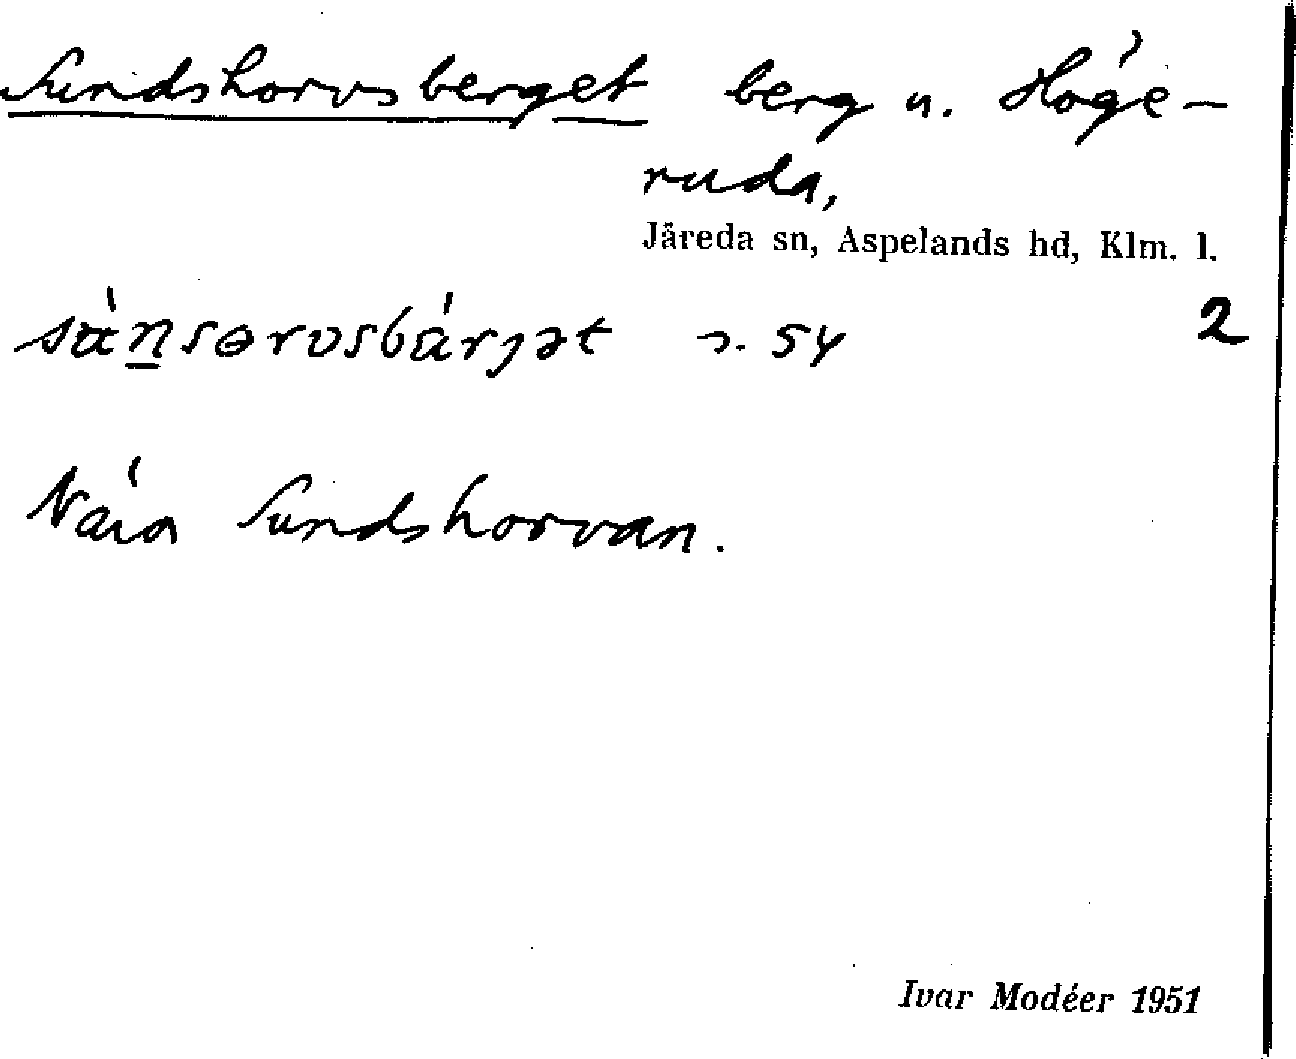 Sundshorvsberget berg u. Höge-
ruda,
Järeda sn, Aspelands hd, Klm. l.
2
s. 54
Nära Sundshorvan.
Ivar Modéer 1951